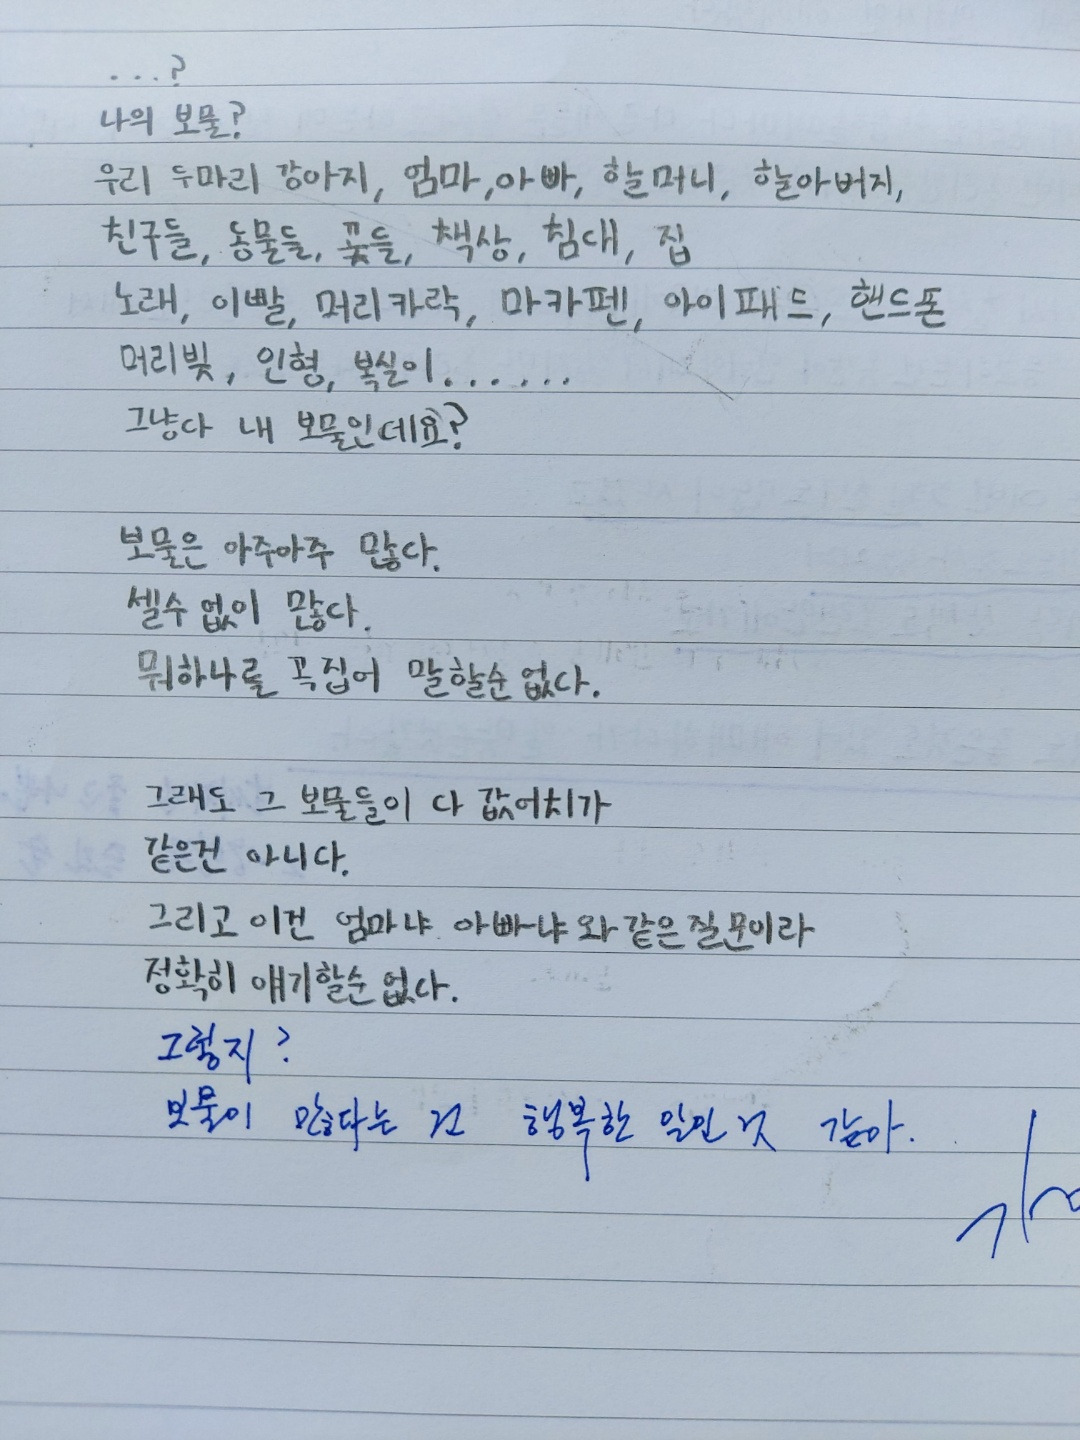 ...?
나의 보물?
우리 두마리 강아지, 엄마,아빠, 할머니, 할아버지,
친구들, 동물들, 꽃들, 책상, 침대, 집
노래, 이빨, 머리카락, 마카펜, 아이패드, 핸드폰
머리빗, 인형, 복실이......
그냥다 내 보물인데요?
보물은 아주아주 많다.
셀수 없이 많다.
뭐하나를 꼭집어 말할순 없다.
그래도 그 보물들이 다 값어치가
같은건 아니다.
그리고 이건 엄마냐 아빠냐 와 같은 질문이라
정확히 얘기할순 없다.
그렇지?
보물이 많다는 건 행복한 일인 것 같아.